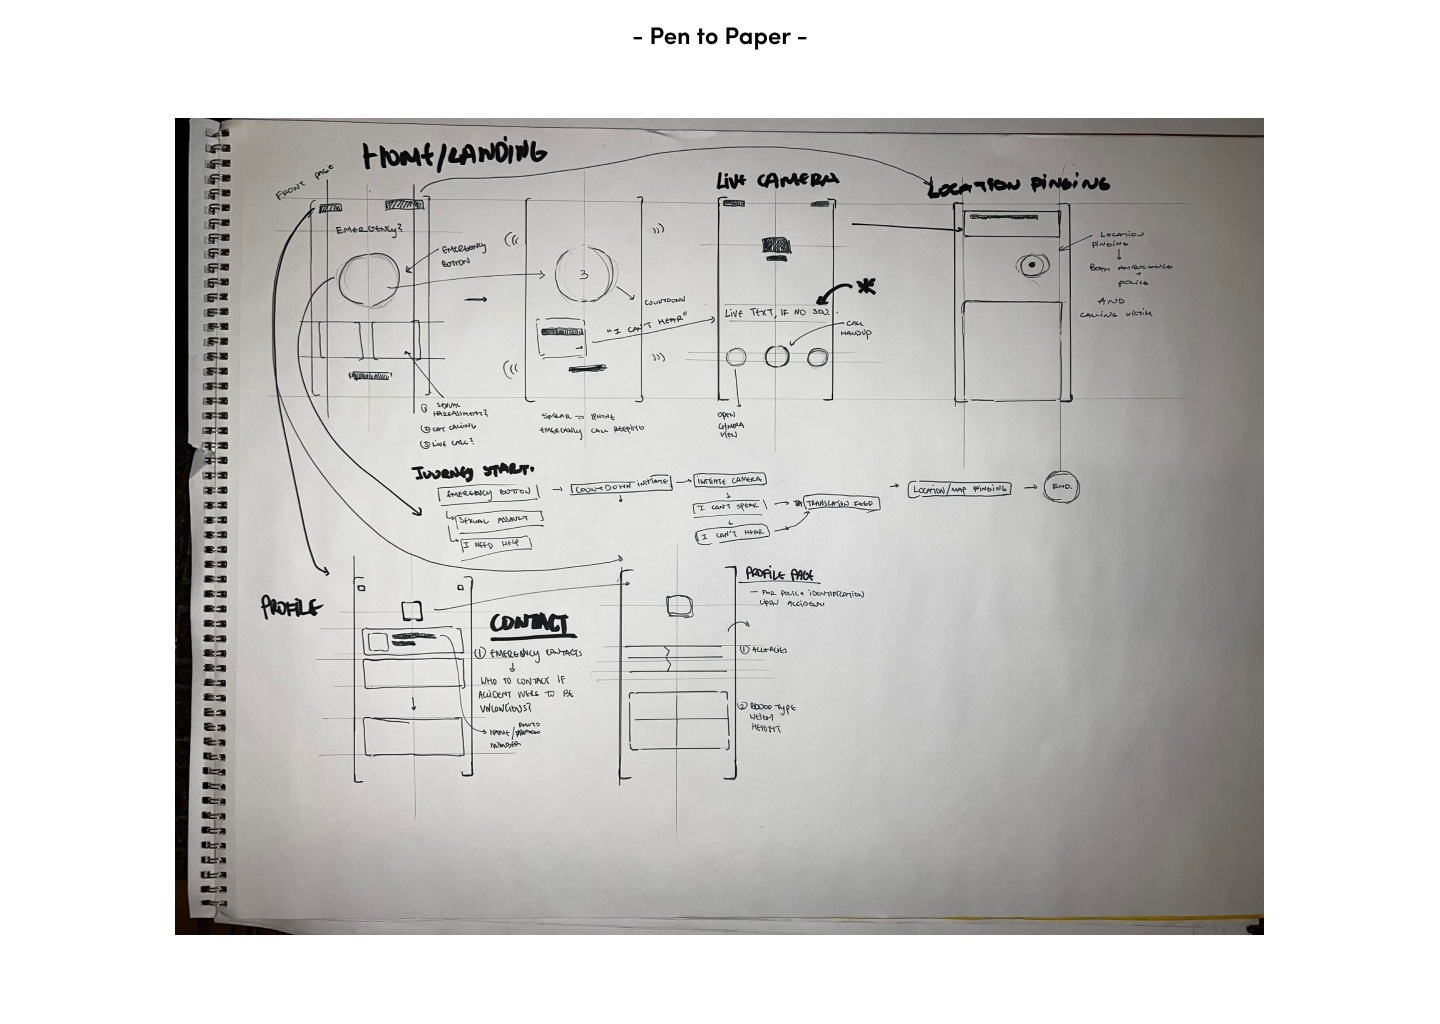 - Pen to Paper -
HOME/LANDING
FRONT PAGE
EMERGENCY?
EMERGENCY
BUTTON
① SEXUAL
HARRASSMENT?
② CAT CALLING
③ LIVE CALL?
3
COUNTDOWN
"I CAN'T HEAR"
SIMILAR TO IPHONE
EMERGENCY CALL BEEPING
LIVE CAMERA
LIVE TEXT, IF NO
CALL
HANGUP
OPEN
CAMERA
VIEW
LOCATION PINGING
LOCATION
PINGING
BOTH AMBULANCE
+
POLICE
AND
CALLING VICTIM
JOURNEY START.
EMERGENCY BUTTON
SEXUAL ASSAULT
I NEED HELP
COUNTDOWN INITIATE
INITIATE CAMERA
I CAN'T SPEAK
I CAN'T HEAR
TRANSLATION FEED
LOCATION/MAP PINGING
END.
PROFILE
CONTACT
① EMERGENCY CONTACTS
WHO TO CONTACT IF
ACCIDENT WERE TO BE
UNCONCIOUS?
NAME/PHOTO
NUMBER
PROFILE PAGE
— FOR POLICE IDENTIFICATION
UPON ACCIDENT
① ALLERGIES
② BLOOD TYPE
WEIGHT
HEIGHT